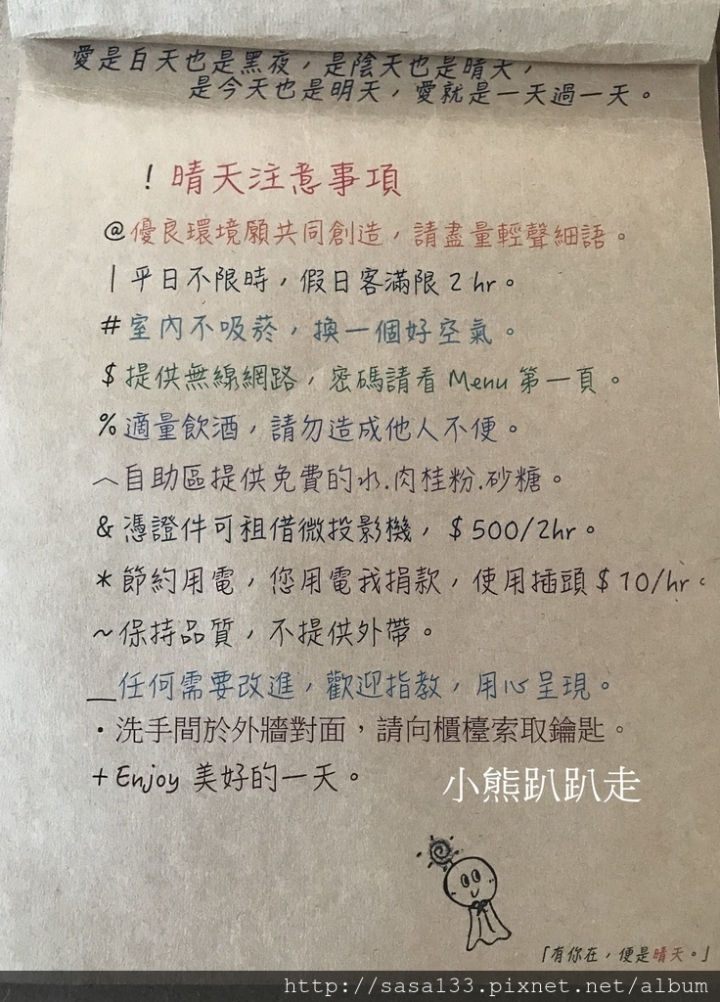 愛是白天也是黑夜，是陰天也是晴天，
是今天也是明天，愛就是一天過一天。
! 晴天注意事項
@優良環境願共同創造，請盡量輕聲細語。
| 平日不限時，假日客滿限 2 hr。
# 室內不吸菸，換一個好空氣。
$ 提供無線網路，密碼請看 Menu 第一頁。
% 適量飲酒，請勿造成他人不便。
︿自助區提供免費的水.肉桂粉.砂糖。
& 憑證件可租借微投影機，$500/2hr。
* 節約用電，您用電我捐款，使用插頭 $10/hr。
~保持品質，不提供外帶。
＿任何需要改進，歡迎指教，用心呈現。
・洗手間於外牆對面，請向櫃檯索取鑰匙。
+ Enjoy 美好的一天。
小熊趴趴走
「有你在，便是晴天。」
http://sasa133.pixnet.net/album